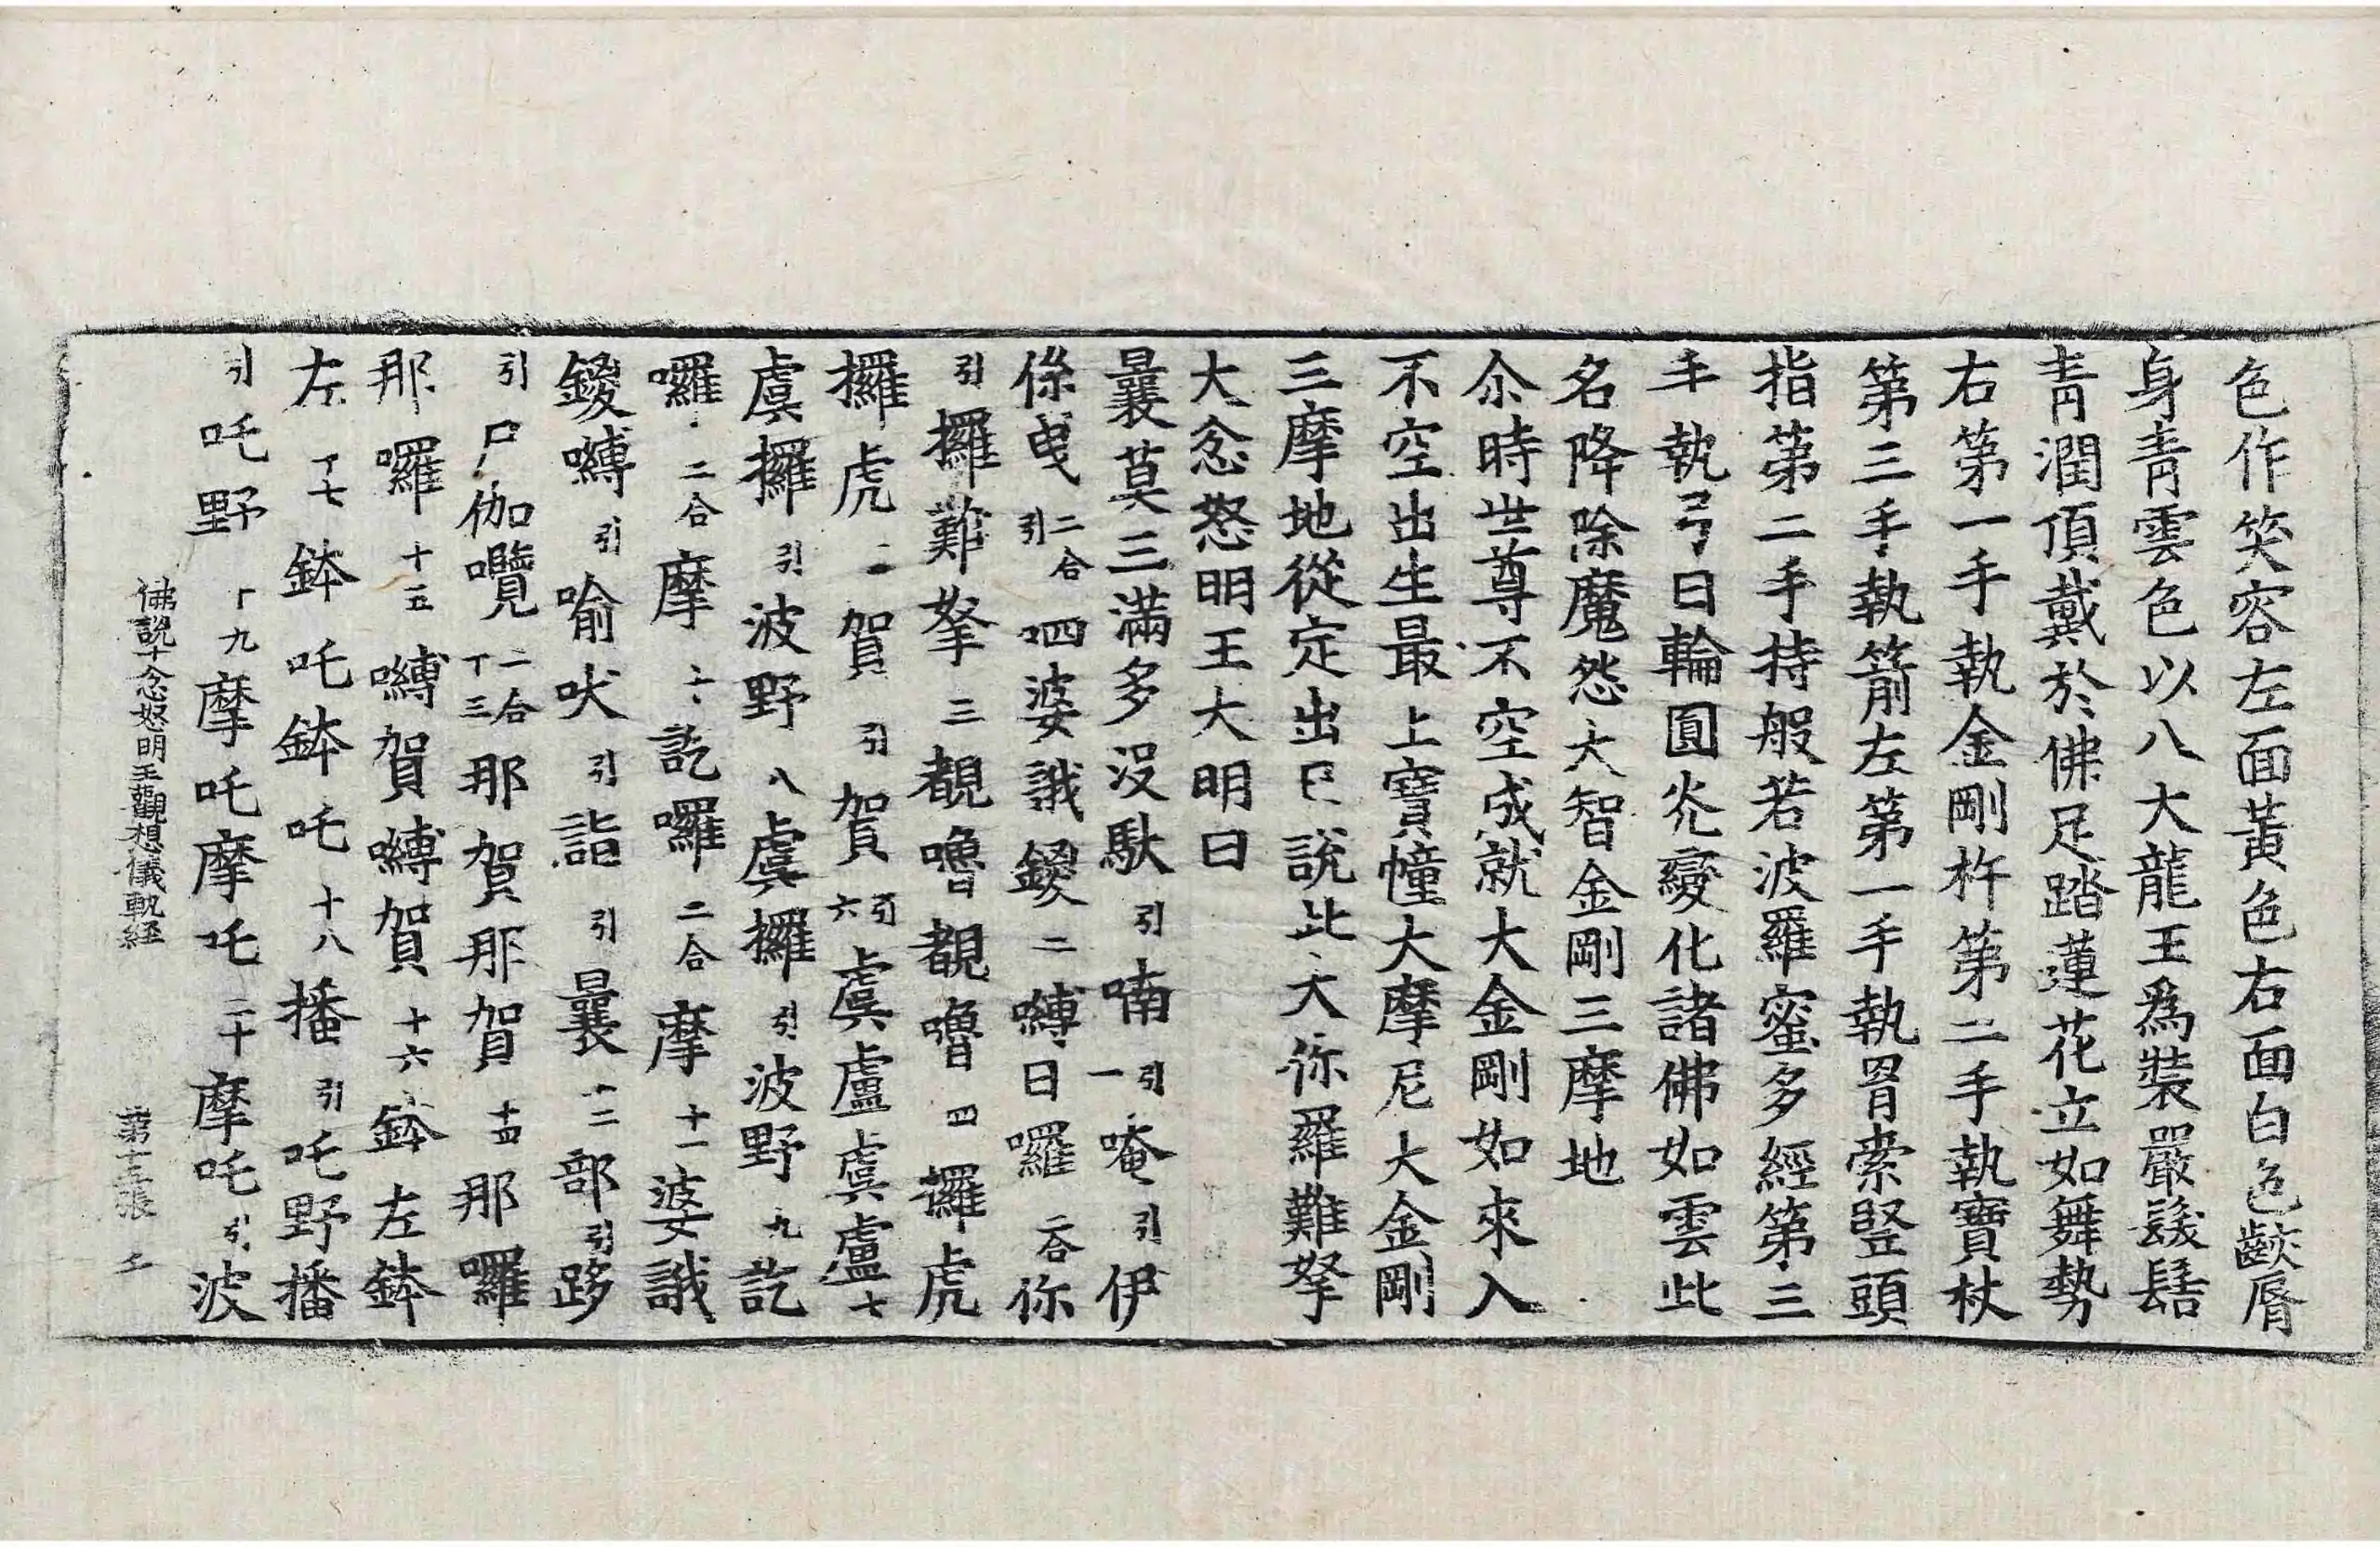 色作笑容左面黃色右面白色齩脣
身青雲色以八大龍王爲裝嚴髮髻
青潤頂戴於佛足踏蓮花立如舞勢
右第一手執金剛杵第二手執寶杖
第三手執箭左第一手執罥索竪頭
指第二手持般若波羅蜜多經第三
手執弓日輪圓光變化諸佛如雲此
名降除魔怨大智金剛三摩地
尒時世尊不空成就大金剛如來入
不空出生最上寶幢大摩尼大金剛
三摩地從定出已說此大你羅難拏
大忿怒明王大明曰
曩莫三滿多沒馱引喃引一唵引伊
係曳二合引呬婆誐鑁二嚩日囉二合你
引攞難拏三覩嚕覩嚕四攞虎
攞虎五賀引賀引六虞盧虞盧七
虞攞引波野八虞攞引波野九訖
囉二合摩十訖囉二合摩十一婆誐
鑁嚩引喻吠引詣引曩十二部引跢
引尸伽囕二合十三那賀那賀十四那囉
那囉十五嚩賀嚩賀十六鉢左鉢
左十七鉢吒鉢吒十八播引吒野播
引吒野十九摩吒摩吒二十摩吒引波
佛說十忿怒明王觀想儀軌經 第十三張 千